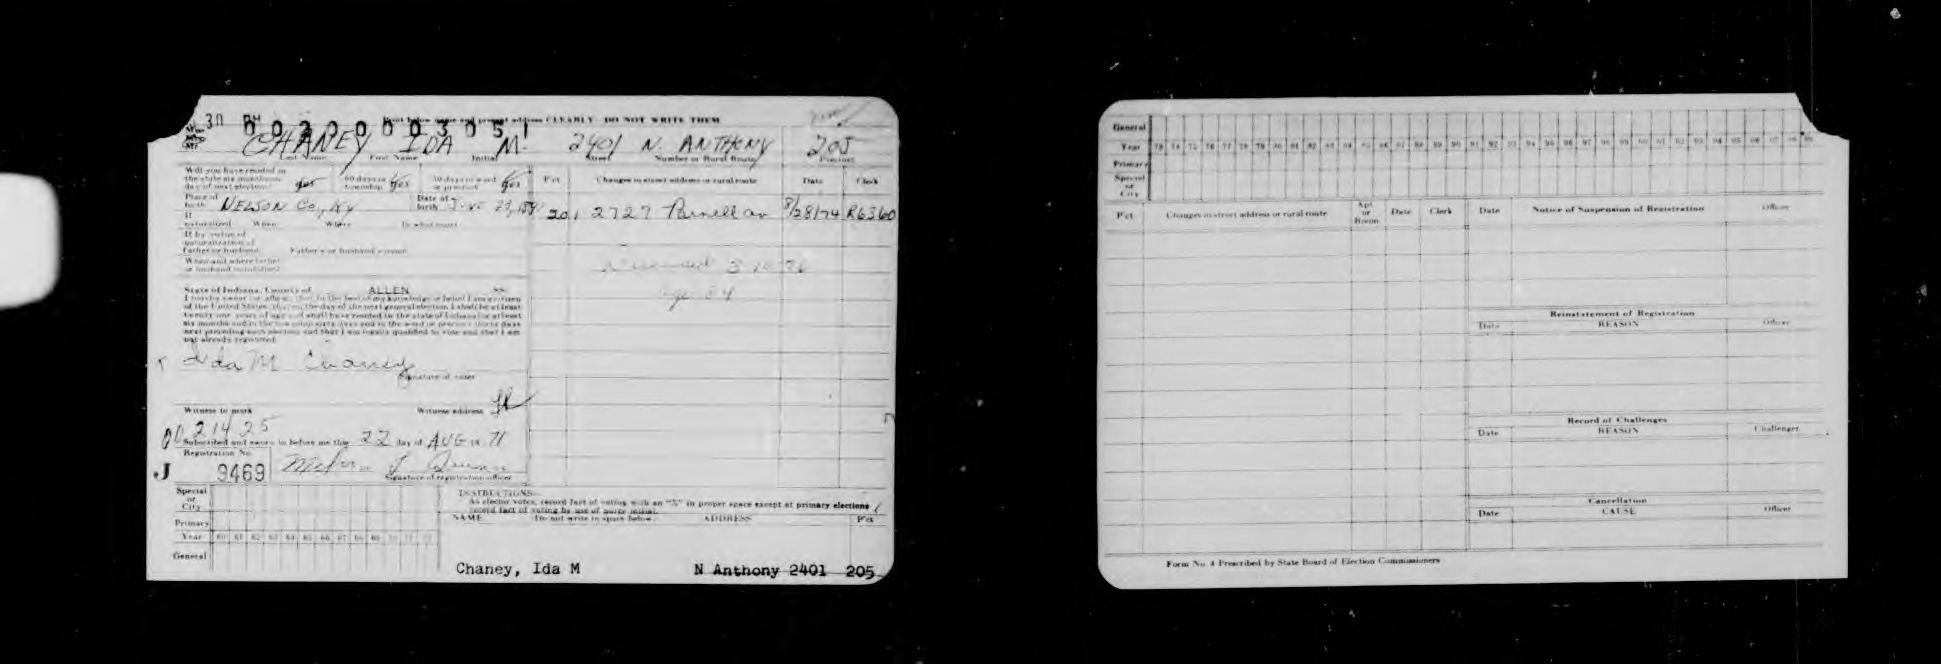 30 PM
00200003051
Print below name and present address CLEARLY DO NOT WRITE THEM
Miss
Mrs
Mr
CHANEY IDA M. 2401 N. ANTHONY 205
Last Name First Name Initial Street Number or Rural Route Precinct
Will you have resided in
the state six months on
day of next election? yes
60 days in
township yes
30 days in ward
or precinct yes
Place of
birth NELSON CO., KY
Date of
birth
If
naturalized When Where In what court
If by virtue of
naturalization of
father or husband Father's or husband's name
When and where father
or husband naturalized
State of Indiana, County of ALLEN ss:
I hereby swear (or affirm) that to the best of my knowledge or belief I am a citizen
of the United States, that on the day of the next general election I shall be at least
twenty-one years of age and shall have resided in the state of Indiana for at least
six months and in the township sixty days and in the ward or precinct thirty days
next preceding such election and that I am legally qualified to vote and that I am
not already registered.
x Ida M Chaney
Signature of voter
Witness to mark Witness address
00 21425
Subscribed and sworn to before me this 22 day of AUG 19 71
Registration No.
J 9469
Signature of registration officer
P'ct Changes in street address or rural route Date Clerk
201 2727 Parnell av 8/28/74 R6360
Deceased
age 84
Special
or
City
Primary
Year 60 61 62 63 64 65 66 67 68 69 70 71 72
General
INSTRUCTIONS
As elector votes, record fact of voting with an "X" in proper space except at primary elections
record fact of voting by use of party initial.
NAME Do not write in space below ADDRESS P'ct
Chaney, Ida M N Anthony 2401 205
General
Year 73 74 75 76 77 78 79 80 81 82 83 84 85 86 87 88 89 90 91 92 93 94 95 96 97 98 99
Primary
Special
or
City
P'ct Changes in street address or rural route Apt. or Room Date Clerk
Date Notice of Suspension of Registration Officer
Reinstatement of Registration
Date REASON Officer
Record of Challenges
Date REASON Challenger
Cancellation
Date CAUSE Officer
Form No. 4 Prescribed by State Board of Election Commissioners